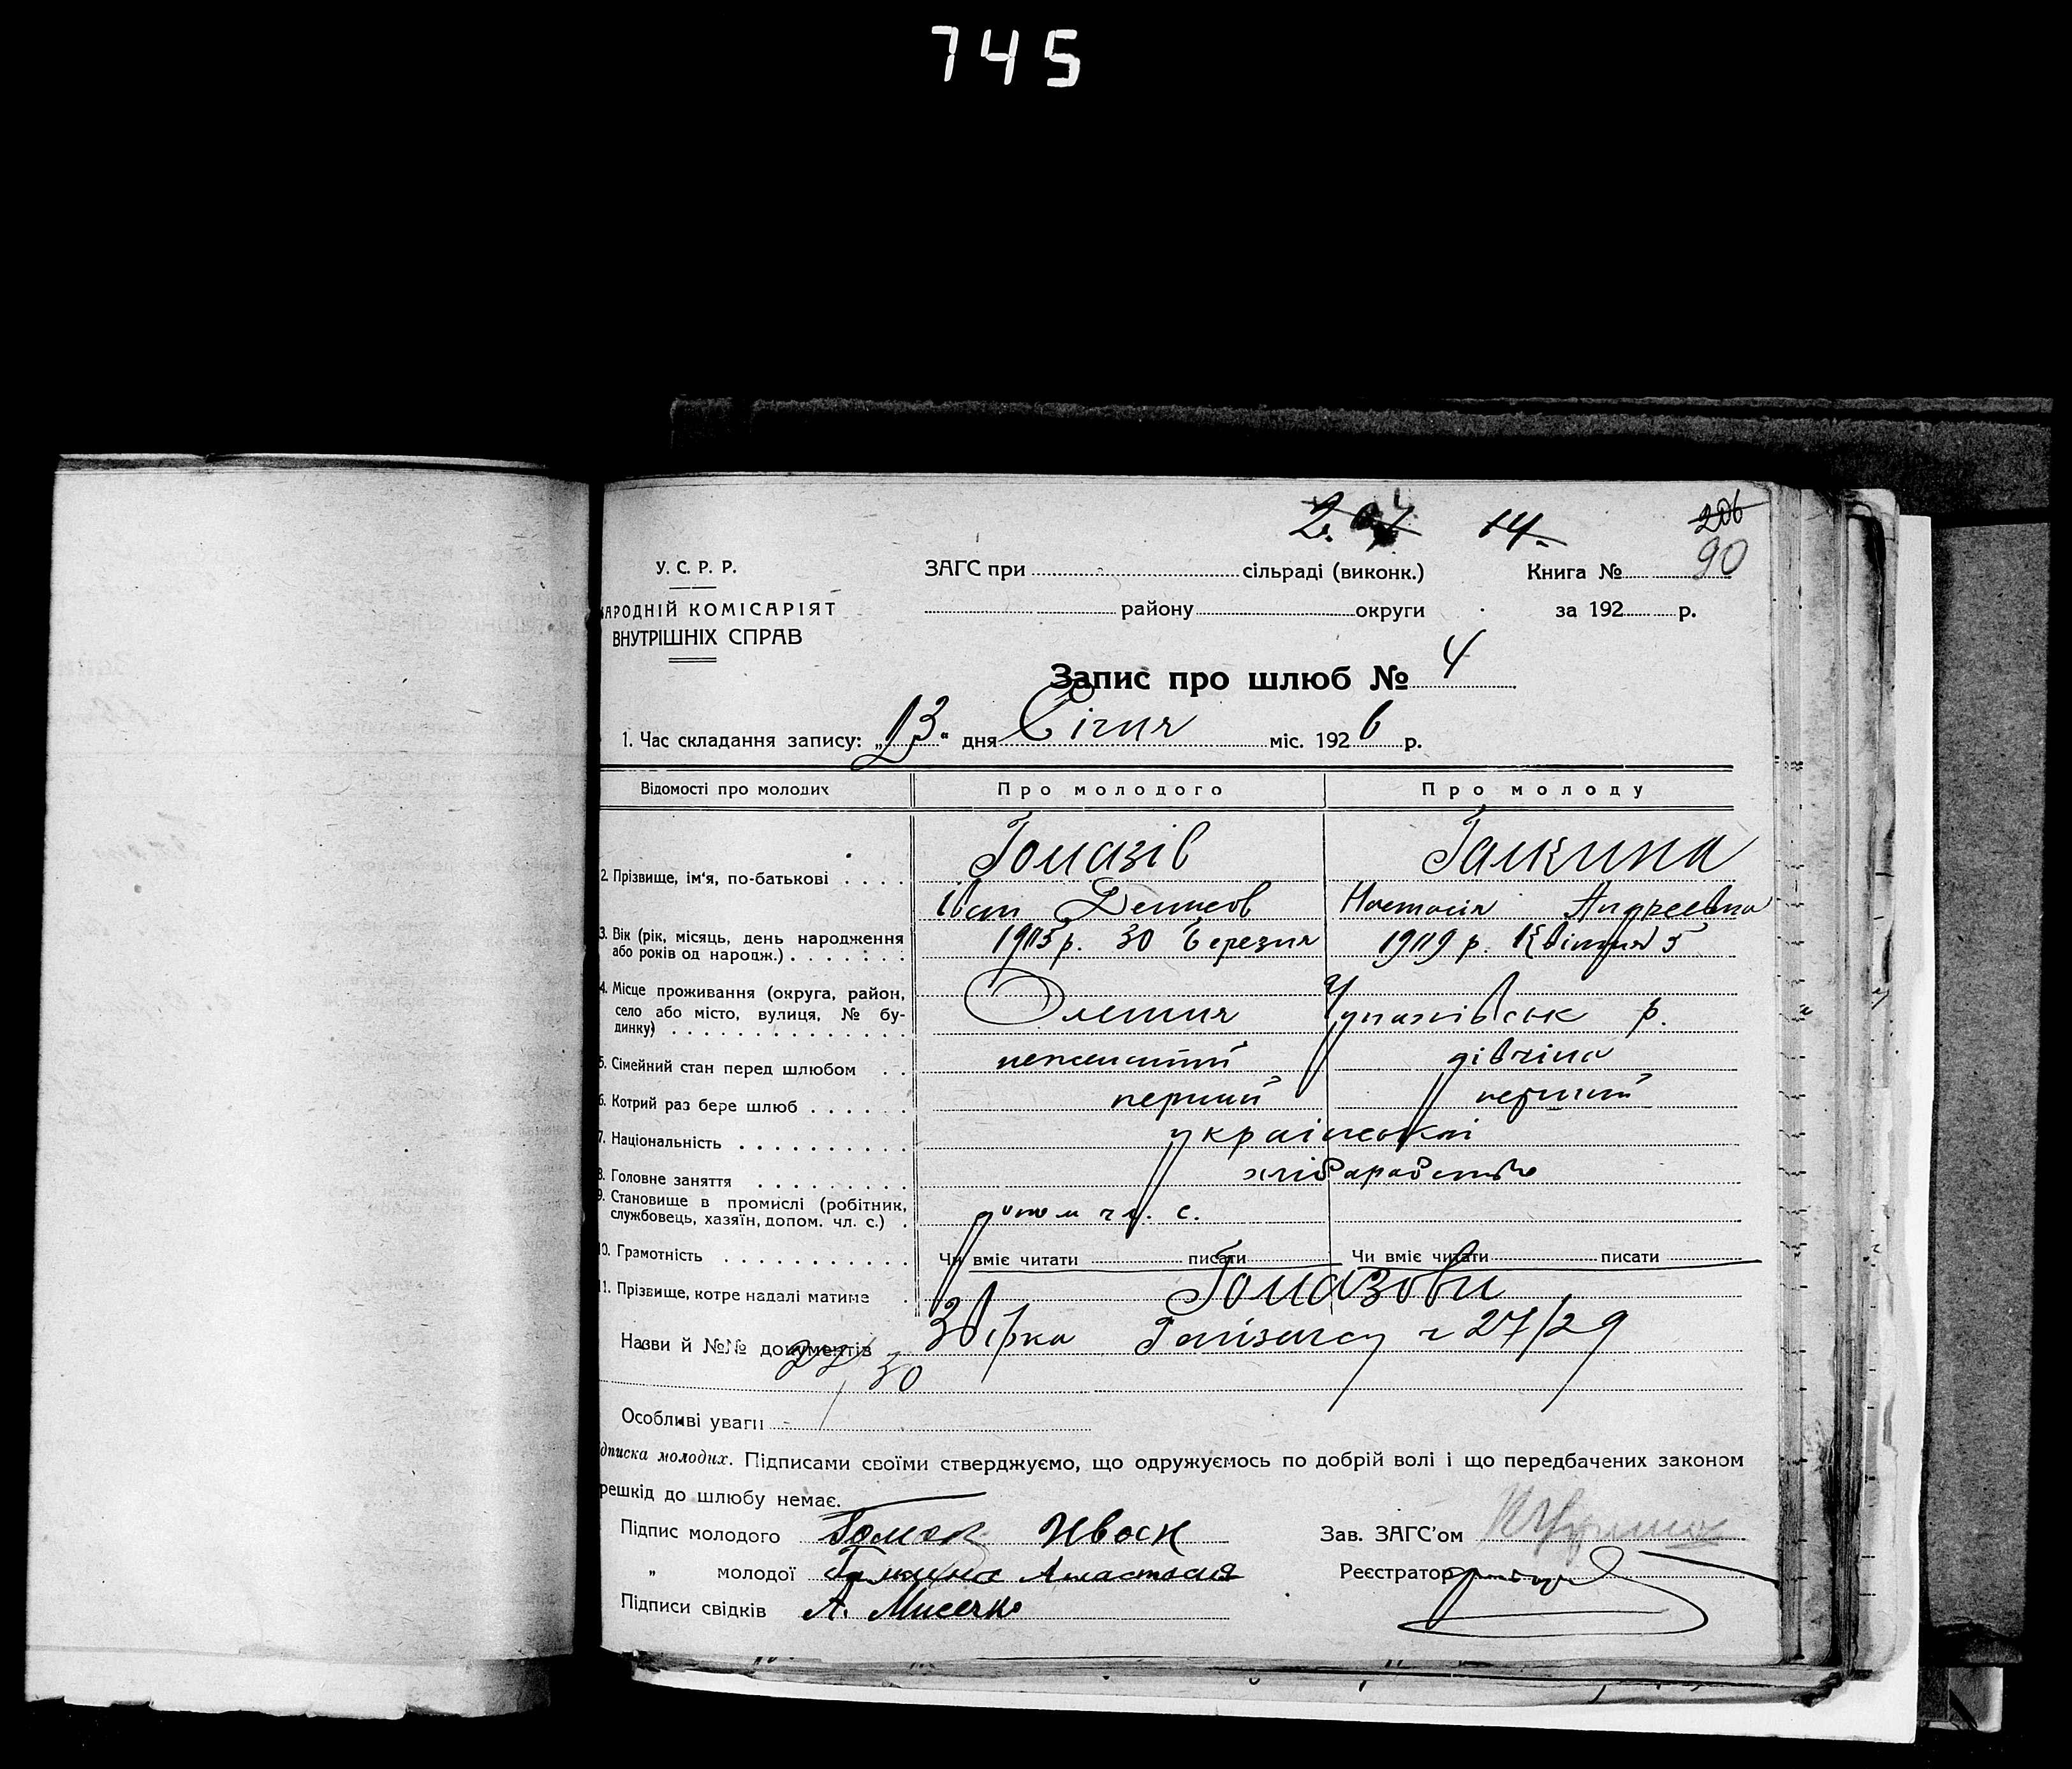 745
14.
206
У. С. Р. Р.
ЗАГС при сільраді (виконк.)
Книга № 90
АРОДНІЙ КОМІСАРІЯТ
району округи за 192 р.
ВНУТРІШНІХ СПРАВ
Запис про шлюб № 4
1. Час складання запису: „13“ дня Січня міс. 1926 р.
Відомості про молодих
Про молодого
Про молоду
Гомазів
Галкина
2. Прізвище, ім'я, по-батькові
Іван Денисов
Настасія Андреевна
3. Вік (рік, місяць, день народження
або років од народж.)
1905 р. 30 Березня
1909 р. Квітня 5
4. Місце проживання (округа, район,
село або місто, вулиця, № бу-
динку)
р.
5. Сімейний стан перед шлюбом
нежинатий
дівчина
6. Котрий раз бере шлюб
перший
перший
7. Національність
українські
8. Головне заняття
хлібарабство
9. Становище в промислі (робітник,
службовець, хазяїн, допом. чл. с.)
допом чл. с.
10. Грамотність
Чи вміє читати писати
Чи вміє читати писати
11. Прізвище, котре надалі матиме
Гомазови
Назви й №№ документів
27/29
30
Особливі уваги
дписка молодих. Підписами своїми стверджуємо, що одружуємось по добрій волі і що передбачених законом
решкід до шлюбу немає.
Підпис молодого
Зав. ЗАГС'ом
„ молодої Анастасия
Реєстратор
Підписи свідків А. Мисечко